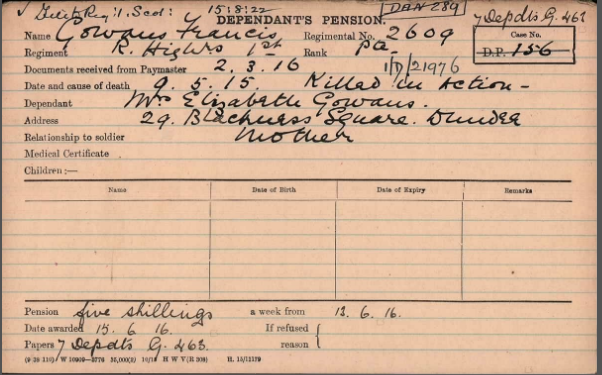 15:8:22 DAH 289
DEPENDANT'S PENSION. 7 Depdts G. 463
Name Gowans Francis Regimental No. 2609 Case No.
Regiment R. Highrs 1st Rank Pa D.P. 156
Documents received from Paymaster 2. 3. 16 1/D/21976
Date and cause of death 9. 5. 15. Killed in Action -
Dependant Mrs Elizabeth Gowans.
Address 29. Blackness Square. Dundee
Relationship to soldier Mother
Medical Certificate
Children :—
Name Date of Birth Date of Expiry Remarks
Pension five shillings a week from 13. 6. 16.
Date awarded 15. 6 16. If refused {
Papers 7 Depdts G. 463. reason
(9 28 110) W 10909—3776 35,000(2) 10/15 H W V(R 308) H. 15/1179